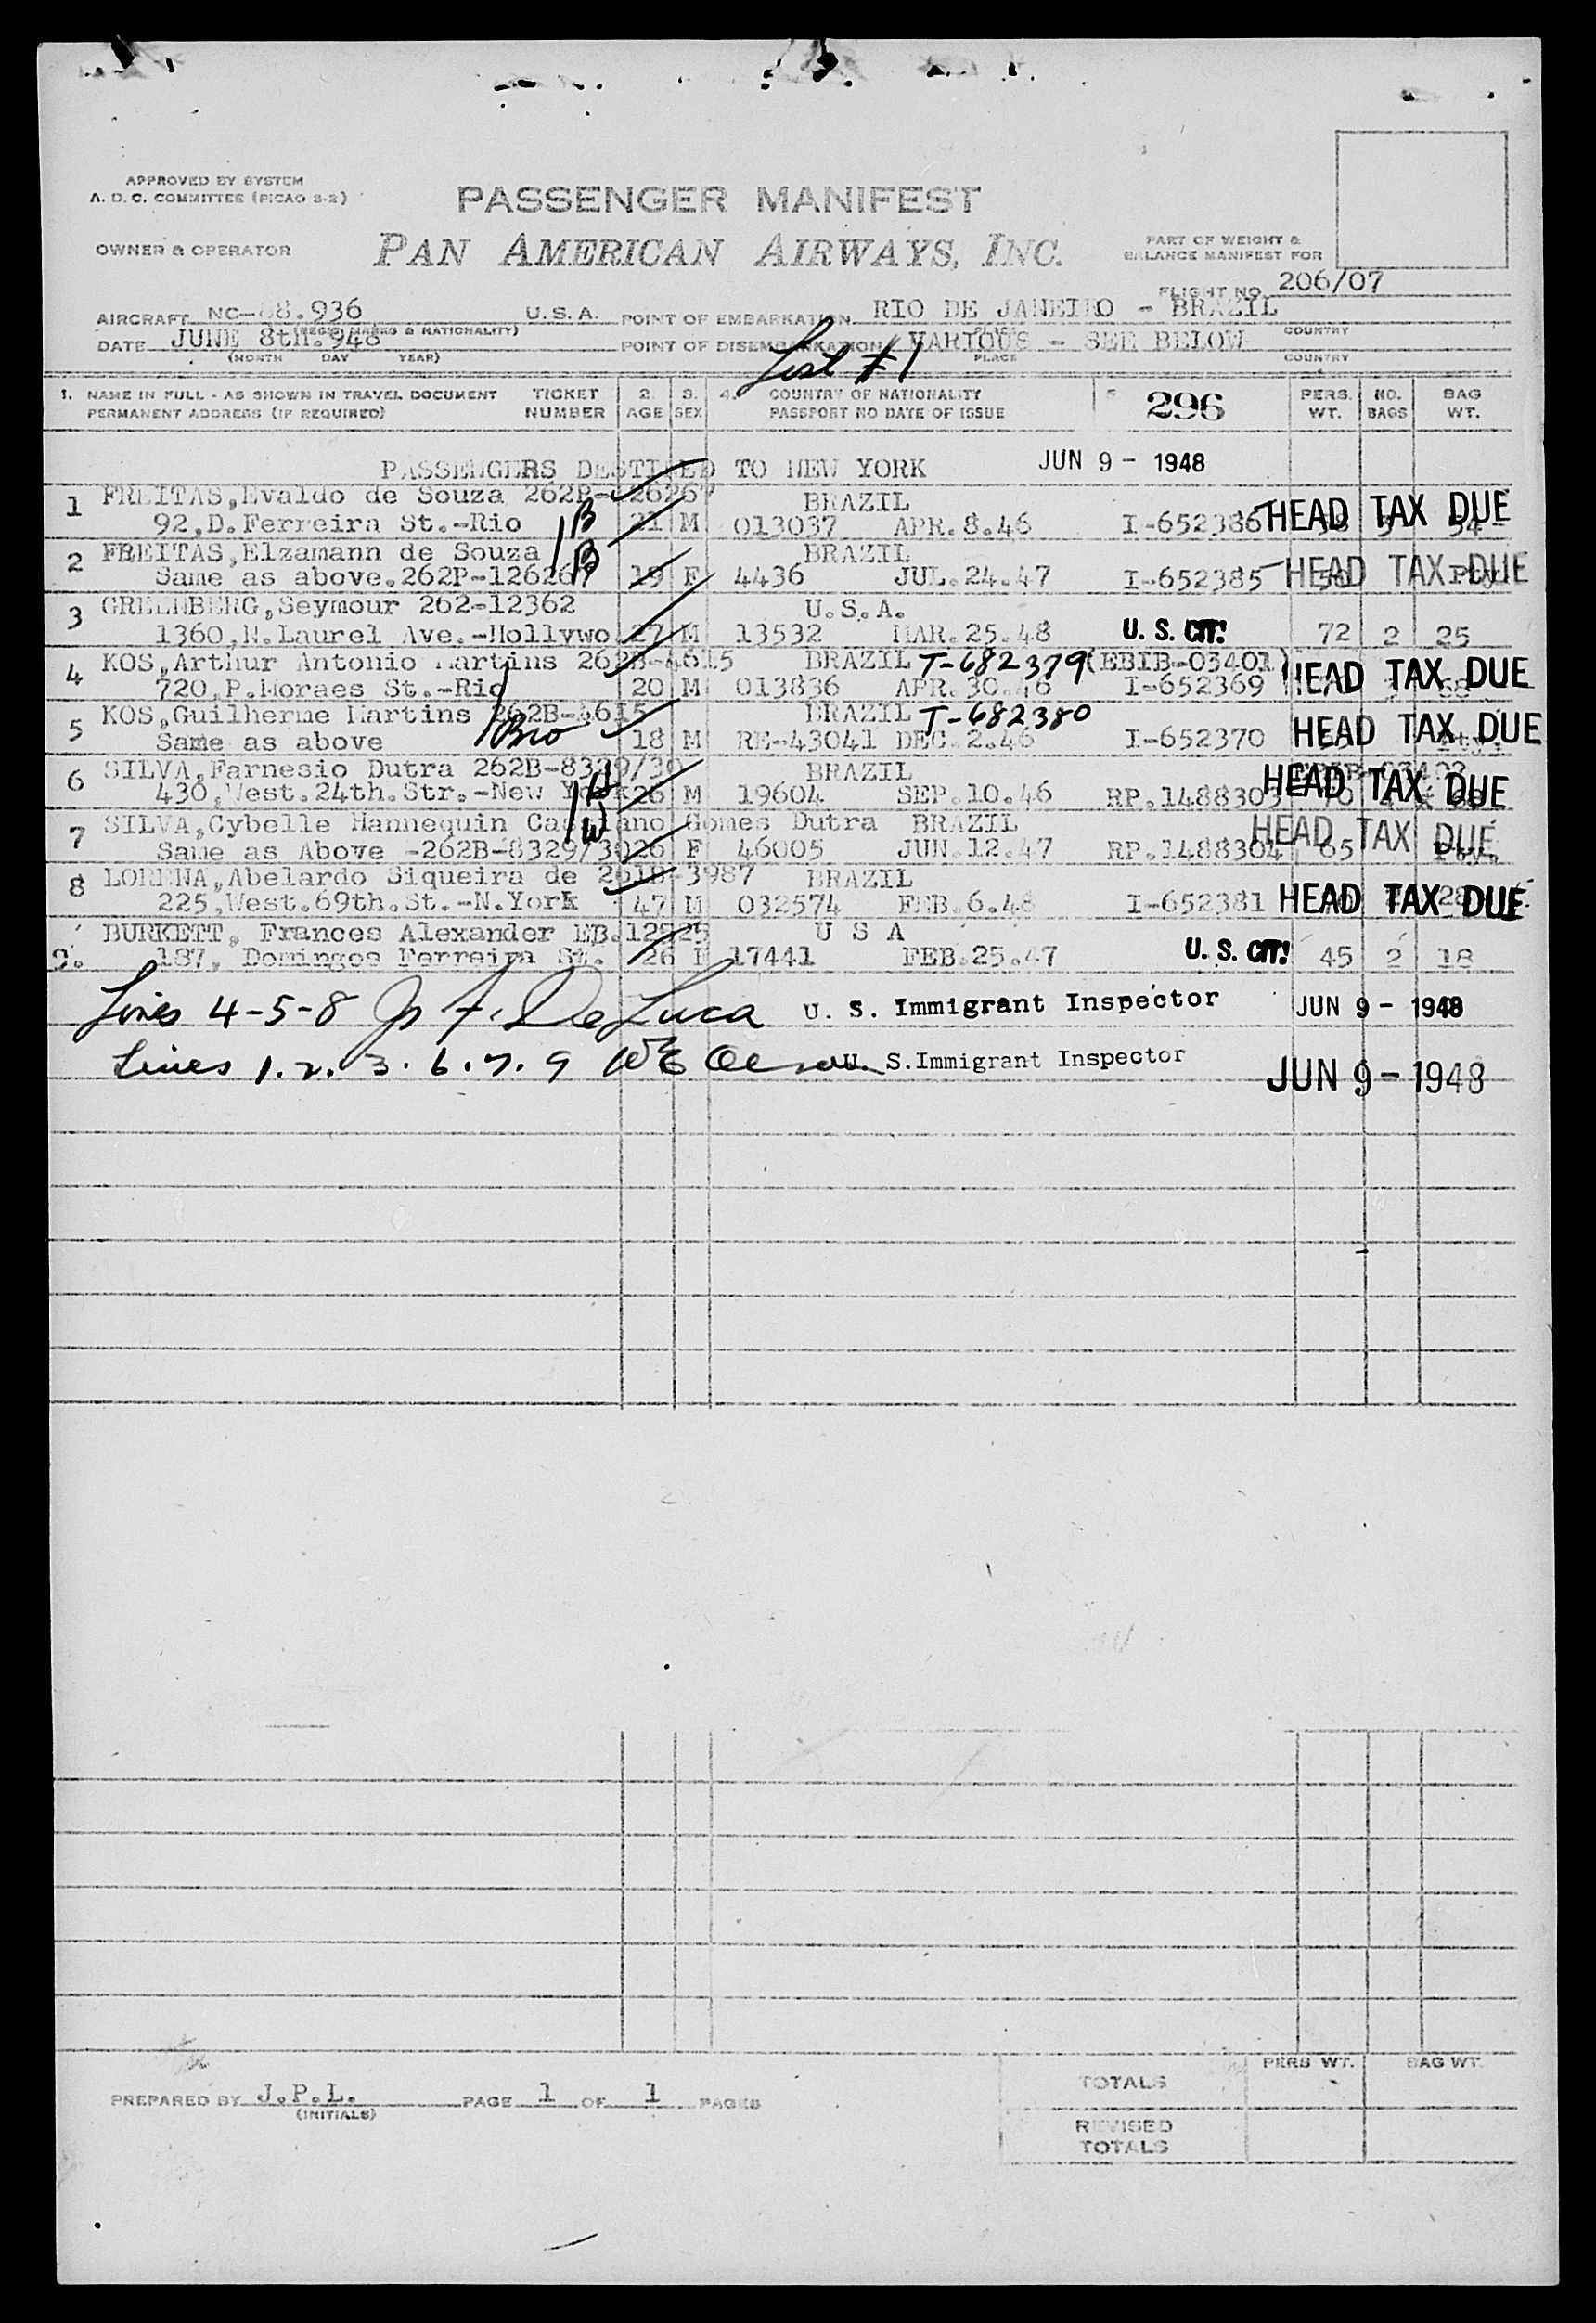 APPROVED BY SYSTEM
A. D. C. COMMITTEE (PICAO 3-2)
PASSENGER MANIFEST
OWNER & OPERATOR PAN AMERICAN AIRWAYS, INC.
PART OF WEIGHT &
BALANCE MANIFEST FOR
FLIGHT NO. 206/07
AIRCRAFT NC-88.936 U.S.A. POINT OF EMBARKATION RIO DE JANEIRO - BRAZIL
(REGIS. MARKS & NATIONALITY) PLACE COUNTRY
DATE JUNE 8th.948 POINT OF DISEMBARKATION VARIOUS - SEE BELOW
(MONTH DAY YEAR) PLACE COUNTRY
List #1
1. NAME IN FULL - AS SHOWN IN TRAVEL DOCUMENT TICKET 2. 3. 4. COUNTRY OF NATIONALITY 296 PERS. NO. BAG
PERMANENT ADDRESS (IF REQUIRED) NUMBER AGE SEX PASSPORT NO DATE OF ISSUE WT. BAGS WT.
PASSENGERS DESTINED TO NEW YORK JUN 9 - 1948
1 FREITAS,Evaldo de Souza 262B-126267 BRAZIL
92,D.Ferreira St.-Rio 1B 21 M 013037 APR.8.46 I-652386 HEAD TAX DUE 54
2 FREITAS,Elzamann de Souza 1B BRAZIL
Same as above.262P-126267 19 F 4436 JUL.24.47 I-652385 HEAD TAX DUE
3 GREENBERG,Seymour 262-12362 U.S.A.
1360,N.Laurel Ave.-Hollywo 27 M 13532 MAR.25.48 U. S. CIT! 72 2 25
4 KOS,Arthur Antonio Martins 262B-4615 BRAZIL T-682379 (EBIB-03401)
720,P.Moraes St.-Rio 20 M 013836 APR.30.46 I-652369 HEAD TAX DUE 68
5 KOS,Guilherme Martins 262B-4615 BRAZIL T-682380
Same as above Bro 18 M RE-43041 DEC.2.46 I-652370 HEAD TAX DUE
6 SILVA,Farnesio Dutra 262B-8329/30 BRAZIL
430,West.24th.Str.-New York 1H 26 M 19604 SEP.10.46 RP.1488303 HEAD TAX DUE
7 SILVA,Cybelle Hannequin Gomes Dutra BRAZIL
Same as Above -262B-8329/30 1W 26 F 46005 JUN.12.47 RP.1488304 65 HEAD TAX DUE
8 LORENA,Abelardo Siqueira de 261B-3987 BRAZIL
225,West.69th.St.-N.York 47 M 032574 FEB.6.48 I-652381 HEAD TAX DUE 28
9. BURKETT, Frances Alexander EB.12525 U S A
187, Domingos Ferreira St. 26 F 17441 FEB.25.47 U. S. CIT! 45 2 18
Lines 4-5-8 De Luca U. S. Immigrant Inspector JUN 9 - 1948
Lines 1. 2. 3. 6. 7. 9 U. S.Immigrant Inspector JUN 9 - 1948
PREPARED BY J.P.L. PAGE 1 OF 1 PAGES
(INITIALS)
PERS WT. BAG WT.
TOTALS
REVISED
TOTALS